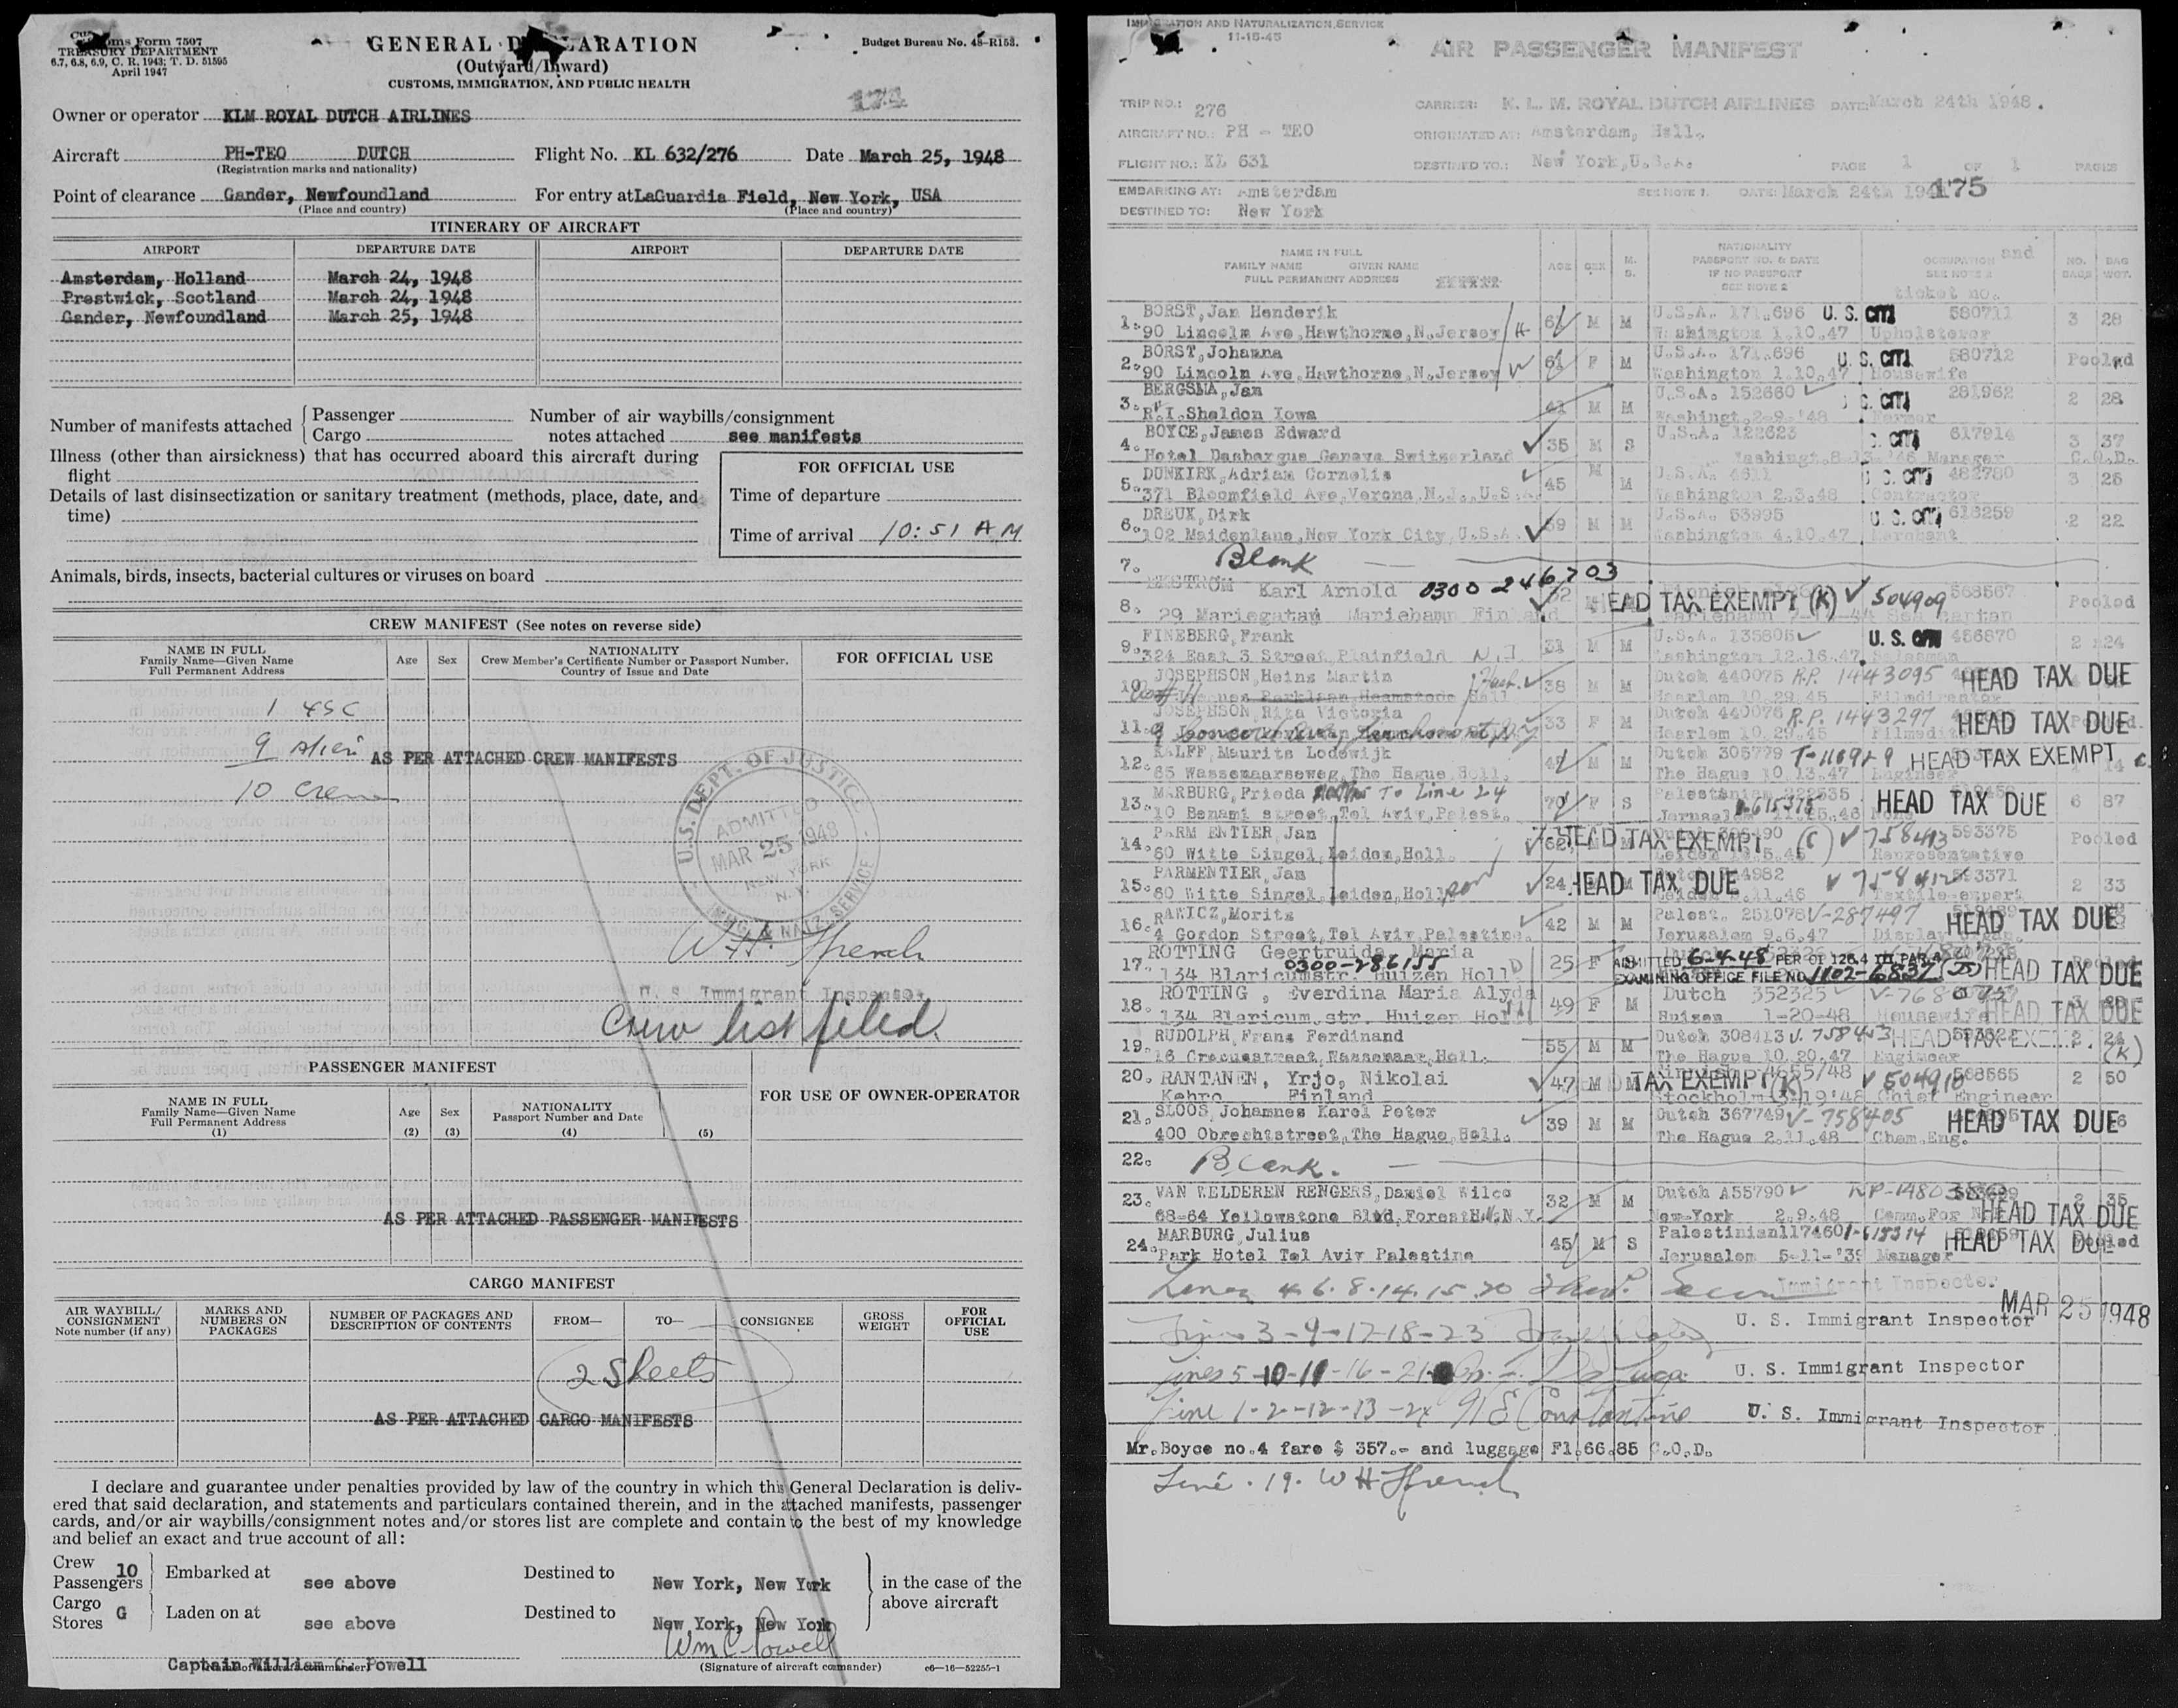 Customs Form 7507
TREASURY DEPARTMENT
6.7, 6.8, 6.9, C. R. 1943; T. D. 51595
April 1947
GENERAL DECLARATION
(Outward/Inward)
CUSTOMS, IMMIGRATION, AND PUBLIC HEALTH
Budget Bureau No. 48-R153.
174
Owner or operator KLM ROYAL DUTCH AIRLINES
Aircraft PH-TEO DUTCH Flight No. KL 632/276 Date March 25, 1948
(Registration marks and nationality)
Point of clearance Gander, Newfoundland For entry at LaGuardia Field, New York, USA
(Place and country) (Place and country)
ITINERARY OF AIRCRAFT
AIRPORT DEPARTURE DATE AIRPORT DEPARTURE DATE
Amsterdam, Holland March 24, 1948
Prestwick, Scotland March 24, 1948
Gander, Newfoundland March 25, 1948
Number of manifests attached { Passenger
Cargo
Number of air waybills/consignment
notes attached see manifests
Illness (other than airsickness) that has occurred aboard this aircraft during
flight
Details of last disinsectization or sanitary treatment (methods, place, date, and
time)
FOR OFFICIAL USE
Time of departure
Time of arrival 10:51 AM
Animals, birds, insects, bacterial cultures or viruses on board
CREW MANIFEST (See notes on reverse side)
NAME IN FULL
Family Name—Given Name
Full Permanent Address
Age Sex
NATIONALITY
Crew Member's Certificate Number or Passport Number,
Country of Issue and Date
FOR OFFICIAL USE
1 USC
9 Alien
AS PER ATTACHED CREW MANIFESTS
10 Crew
U.S. DEPT. OF JUSTICE
ADMITTED
MAR 25 1948
NEW YORK
N.Y.
IMMG. & NATZ. SERVICE
W.H. French
U. S. Immigrant Inspector
Crew list filed.
PASSENGER MANIFEST
FOR USE OF OWNER-OPERATOR
NAME IN FULL
Family Name—Given Name
Full Permanent Address
(1)
Age
(2)
Sex
(3)
NATIONALITY
Passport Number and Date
(4)
(5)
AS PER ATTACHED PASSENGER MANIFESTS
CARGO MANIFEST
AIR WAYBILL/
CONSIGNMENT
Note number (if any)
MARKS AND
NUMBERS ON
PACKAGES
NUMBER OF PACKAGES AND
DESCRIPTION OF CONTENTS
FROM— TO— CONSIGNEE
GROSS
WEIGHT
FOR
OFFICIAL
USE
2 Sheets
AS PER ATTACHED CARGO MANIFESTS
I declare and guarantee under penalties provided by law of the country in which this General Declaration is deliv-
ered that said declaration, and statements and particulars contained therein, and in the attached manifests, passenger
cards, and/or air waybills/consignment notes and/or stores list are complete and contain to the best of my knowledge
and belief an exact and true account of all:
Crew 10
Passengers
Embarked at see above Destined to New York, New York
Cargo
Stores G
Laden on at see above Destined to New York, New York
in the case of the
above aircraft
Wm C Powell
Captain William C. Powell
(Name of aircraft commander)
(Signature of aircraft commander)
c6—16—52255-1
IMMIGRATION AND NATURALIZATION SERVICE
11-15-45
AIR PASSENGER MANIFEST
TRIP NO.: 276 CARRIER: K. L. M. ROYAL DUTCH AIRLINES DATE: March 24th 1948.
AIRCRAFT NO.: PH - TEO ORIGINATED AT: Amsterdam, Holl.
FLIGHT NO.: KL 631 DESTINED TO: New York, U.S.A. PAGE 1 OF 1 PAGES
EMBARKING AT: Amsterdam SEE NOTE 1. DATE: March 24th 194
175
DESTINED TO: New York
NAME IN FULL
FAMILY NAME GIVEN NAME
FULL PERMANENT ADDRESS
AGE SEX M. S.
NATIONALITY
PASSPORT NO. & DATE
IF NO PASSPORT
SEE NOTE 2
OCCUPATION and
SEE NOTE 2
ticket no.
NO. BAGS BAG WGT.
1. BORST, Jan Henderik 6 M M U.S.A. 171.696 U. S. CITI 580711 3 28
90 Lincoln Ave, Hawthorne, N.Jersey H Washington 1.10.47 Upholsterer
2. BORST, Johanna 61 F M U.S.A. 171.696 U. S. CITI 580712 Pooled
90 Lincoln Ave, Hawthorne, N.Jersey W Washington 1.10.47 Housewife
3. BERGSMA, Jan 41 M M U.S.A. 152660 S. CITI 281962 2 28
R.I. Sheldon Iowa Washingt. 2-9-'48 Farmer
4. BOYCE, James Edward 35 M S U.S.A. 122623 S. CITI 617914 3 37
Hotel Desbergus Geneva Switzerland Washingt. 8-13-'46 Manager C.O.D.
5. DUNKIRK, Adrian Cornelis 45 M M U.S.A. 4611 S. CITI 482780 3 25
371 Bloomfield Ave, Verona, N.J., U.S.A. Washington 2.3.48 Contractor
6. DREUX, Dirk 59 M M U.S.A. 53995 U. S. CITI 616259 2 22
102 Maidenlane, New York City, U.S.A. Washington 4.10.47 Merchant
7. Blank
8. Karl Arnold 0300 246703 HEAD TAX EXEMPT (K) 504909 568567 Pooled
29 Mariegatan Mariehamn Finland
9. FINEBERG, Frank 31 M M U.S.A. 135805 U. S. CITI 456870 2 24
324 East 3 Street, Plainfield N.J. Washington 12.16.47 Salesman
10. JOSEPHSON, Heins Martin 38 M M Dutch 440075 R.P. 1443095 HEAD TAX DUE
Haarlem 10.29.45 Filmdirector
11. JOSEPHSON, Rita Victoria 33 F M Dutch 440076 R.P. 1443297 HEAD TAX DUE
Haarlem 10.29.45
12. KALFF, Maurits Lodewijk M M Dutch 305779 HEAD TAX EXEMPT 14
65 Wassenaarseweg, The Hague Holl. The Hague 10.13.47 Engineer
13. MARBURG, Frieda To Line 24 70 F S Palestinian 222535 HEAD TAX DUE 6 87
10 Benami street, Tel Aviv, Palest. Jerusalem
14. PARMENTIER, Jan 62 HEAD TAX EXEMPT (C) 758413 593375 Pooled
60 Witte Singel, Leiden, Holl. Representative
15. PARMENTIER, Jan son 24 HEAD TAX DUE 758412 593371 2 33
60 Witte Singel, Leiden, Holl. Textile-expert
16. RAWICZ, Moritz 42 M M Palest. 251078 V-287497 HEAD TAX DUE
4 Gordon Street, Tel Aviv, Palestine. Jerusalem 9.6.47
17. ROTTING Geertruida Maria 25 F HEAD TAX DUE
0300-286155
134 Blaricumstr. Huizen Holl
ADMITTED 6-4-48 PER OI 126.4
EXAMINING OFFICE FILE NO. 1102-6837
18. ROTTING, Everdina Maria Alyda 49 F M Dutch 352325 HEAD TAX DUE
134 Blaricum.str. Huizen Holl Huizen 1-20-48 Housewife
19. RUDOLPH, Frans Ferdinand 55 M M Dutch 308413 V. 758453 HEAD TAX EXE 2 24
16 Crocusstreet, Wassenaar, Holl. The Hague 10.20.47 Engineer (K)
20. RANTANEN, Yrjo, Nikolai 47 M TAX EXEMPT (K) 504910 568565 2 50
Kehro Finland Stockholm 3.19'48 Chief Engineer
21. SLOOS, Johannes Karel Peter 39 M M Dutch 367749 V-758405 HEAD TAX DUE
400 Obrechtstreet, The Hague, Holl. The Hague 2.11.48 Chem.Eng.
22. Blank.
23. VAN WELDEREN RENGERS, Daniel Wilco 32 M M Dutch A55790 2 35
68-64 Yellowstone Blvd, Forest H. N.Y. New-York 2.9.48 HEAD TAX DUE
24. MARBURG, Julius 45 M S Palestinian 117460 HEAD TAX DUE
Park Hotel Tel Aviv Palestine Jerusalem 5-11-'39 Manager
Lines 4.6.8.14.15.20
Immigrant Inspector
MAR 25 1948
3-9-17-18-23 U. S. Immigrant Inspector
Lines 5-10-11-16-21 U. S. Immigrant Inspector
Line 1-2-12-13-24 N E Constantine U. S. Immigrant Inspector
Mr. Boyce no.4 fare $ 357.- and luggage Fl.66.85 C.O.D.
Line. 19. W H French